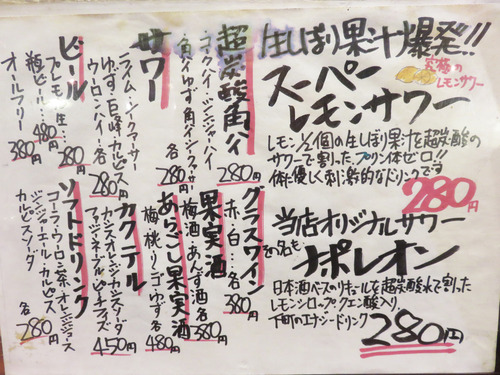 生しぼり果汁爆発!!
究極のレモンサワー
スーパー
レモンサワー
レモン1/2個の生しぼり果汁を超炭酸の
サワーで割った、プリン体ゼロ!!
体に優しく刺激的なドリンクです
280円
当店オリジナルサワー
その名も
ナポレオン
日本酒ベースのリキュールを超炭酸水で割った
レモンシロップクエン酸入り
下町のエナジードリンク
280(円)
超炭酸角ハイ
コークハイ・ジンジャーハイ
角ハイ ゆず角ハイ
各280円
サワー
ライム・シークワーサー
ゆず・巨峰・カルピス
ウーロンハイ
各280円
ビール
プレモル 生
280円
瓶ビール
480円
オールフリー
380円
グラスワイン
赤・白
各380円
果実酒
梅酒・あんず酒
各380円
あらごし果実酒
梅・桃・りんご・ゆず
各480円
カクテル
カシスオレンジ・カシスソーダ
ファジーネーブル・ピーチフィズ
450円
ソフトドリンク
コーラ・ウーロン茶・オレンジジュース
ジンジャーエール・カルピス
カルピスソーダ
各280円